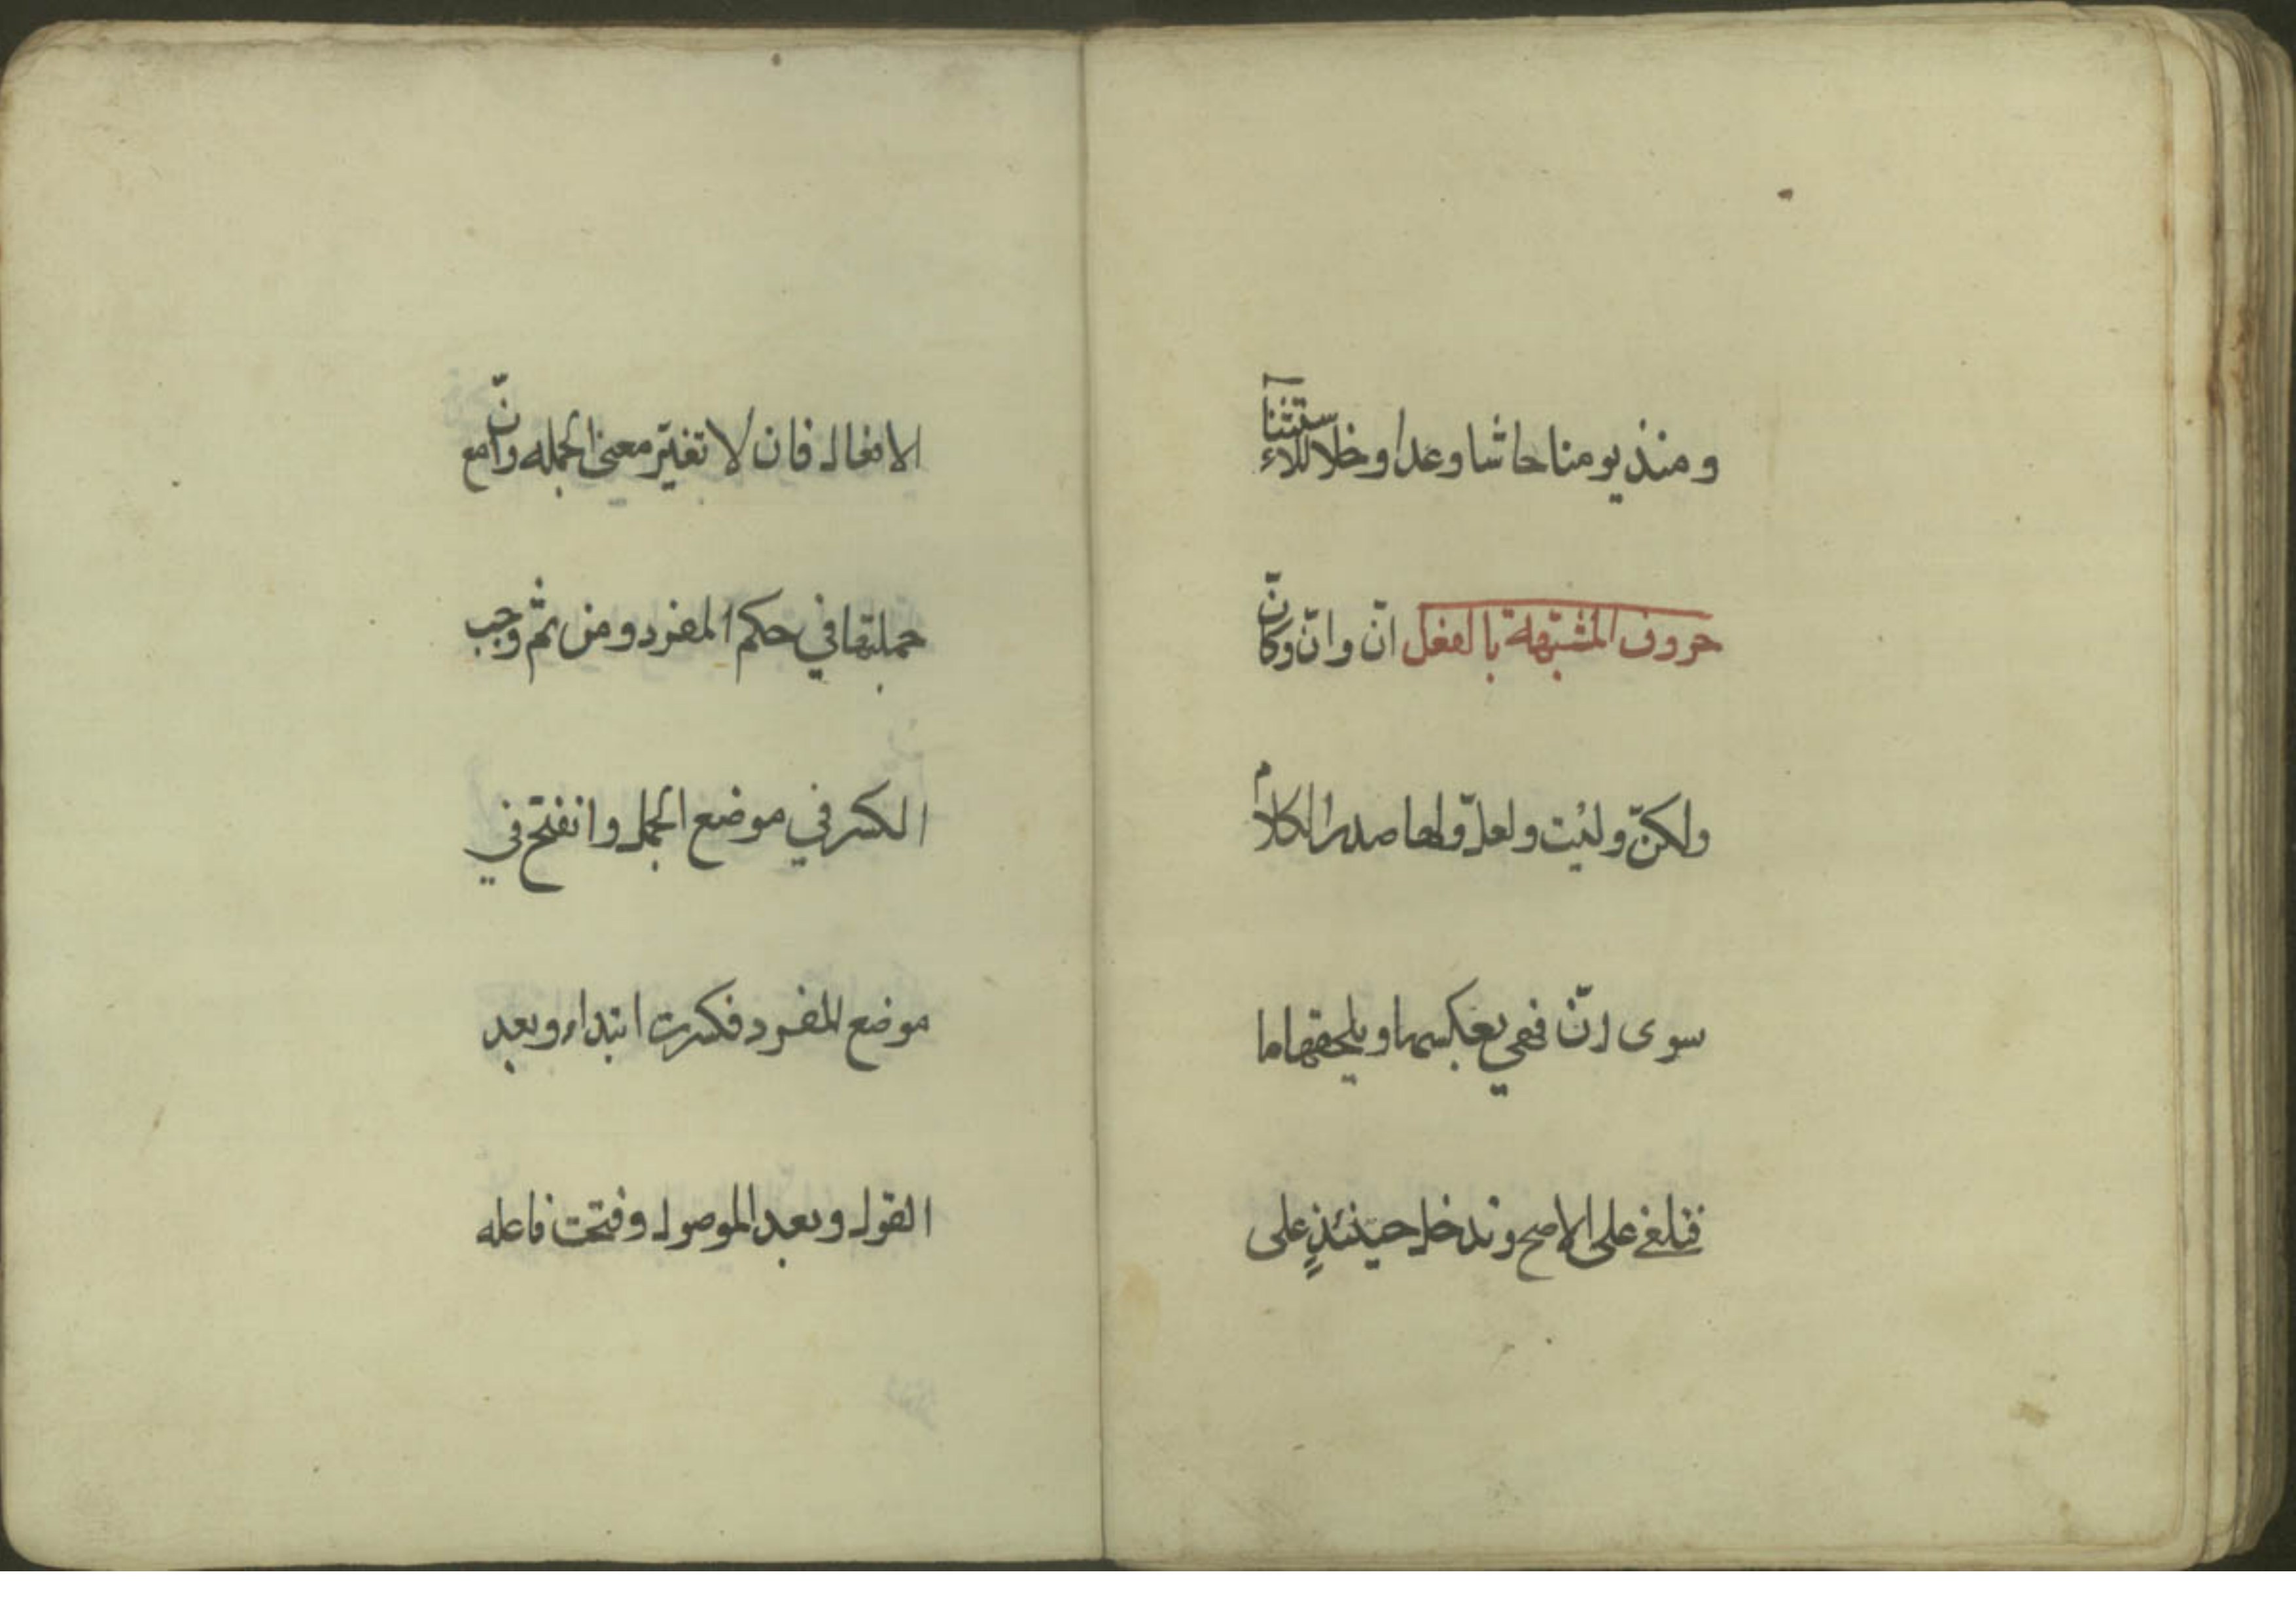 ومنذ يومنا حاشا وعدا وخلا للاستثناء
حروف المشبّهة بالفعل انّ وانّ وكانّ
ولكنّ وليت ولعلّ ولها صدر الكلام
سوى انّ فهي بعكسها ويلحقها ما
فتلغى على الاصح وتدخل حينئذٍ على
الافعال فان لا تغيّر معنى الجمله وانّ مع
جملتها في حكم المفرد ومن ثمّ وجب
الكسر في موضع الجمل وانفتح في
موضع المفرد فكسرت ابتداء وبعد
القول وبعد الموصول وفتحت فاعله